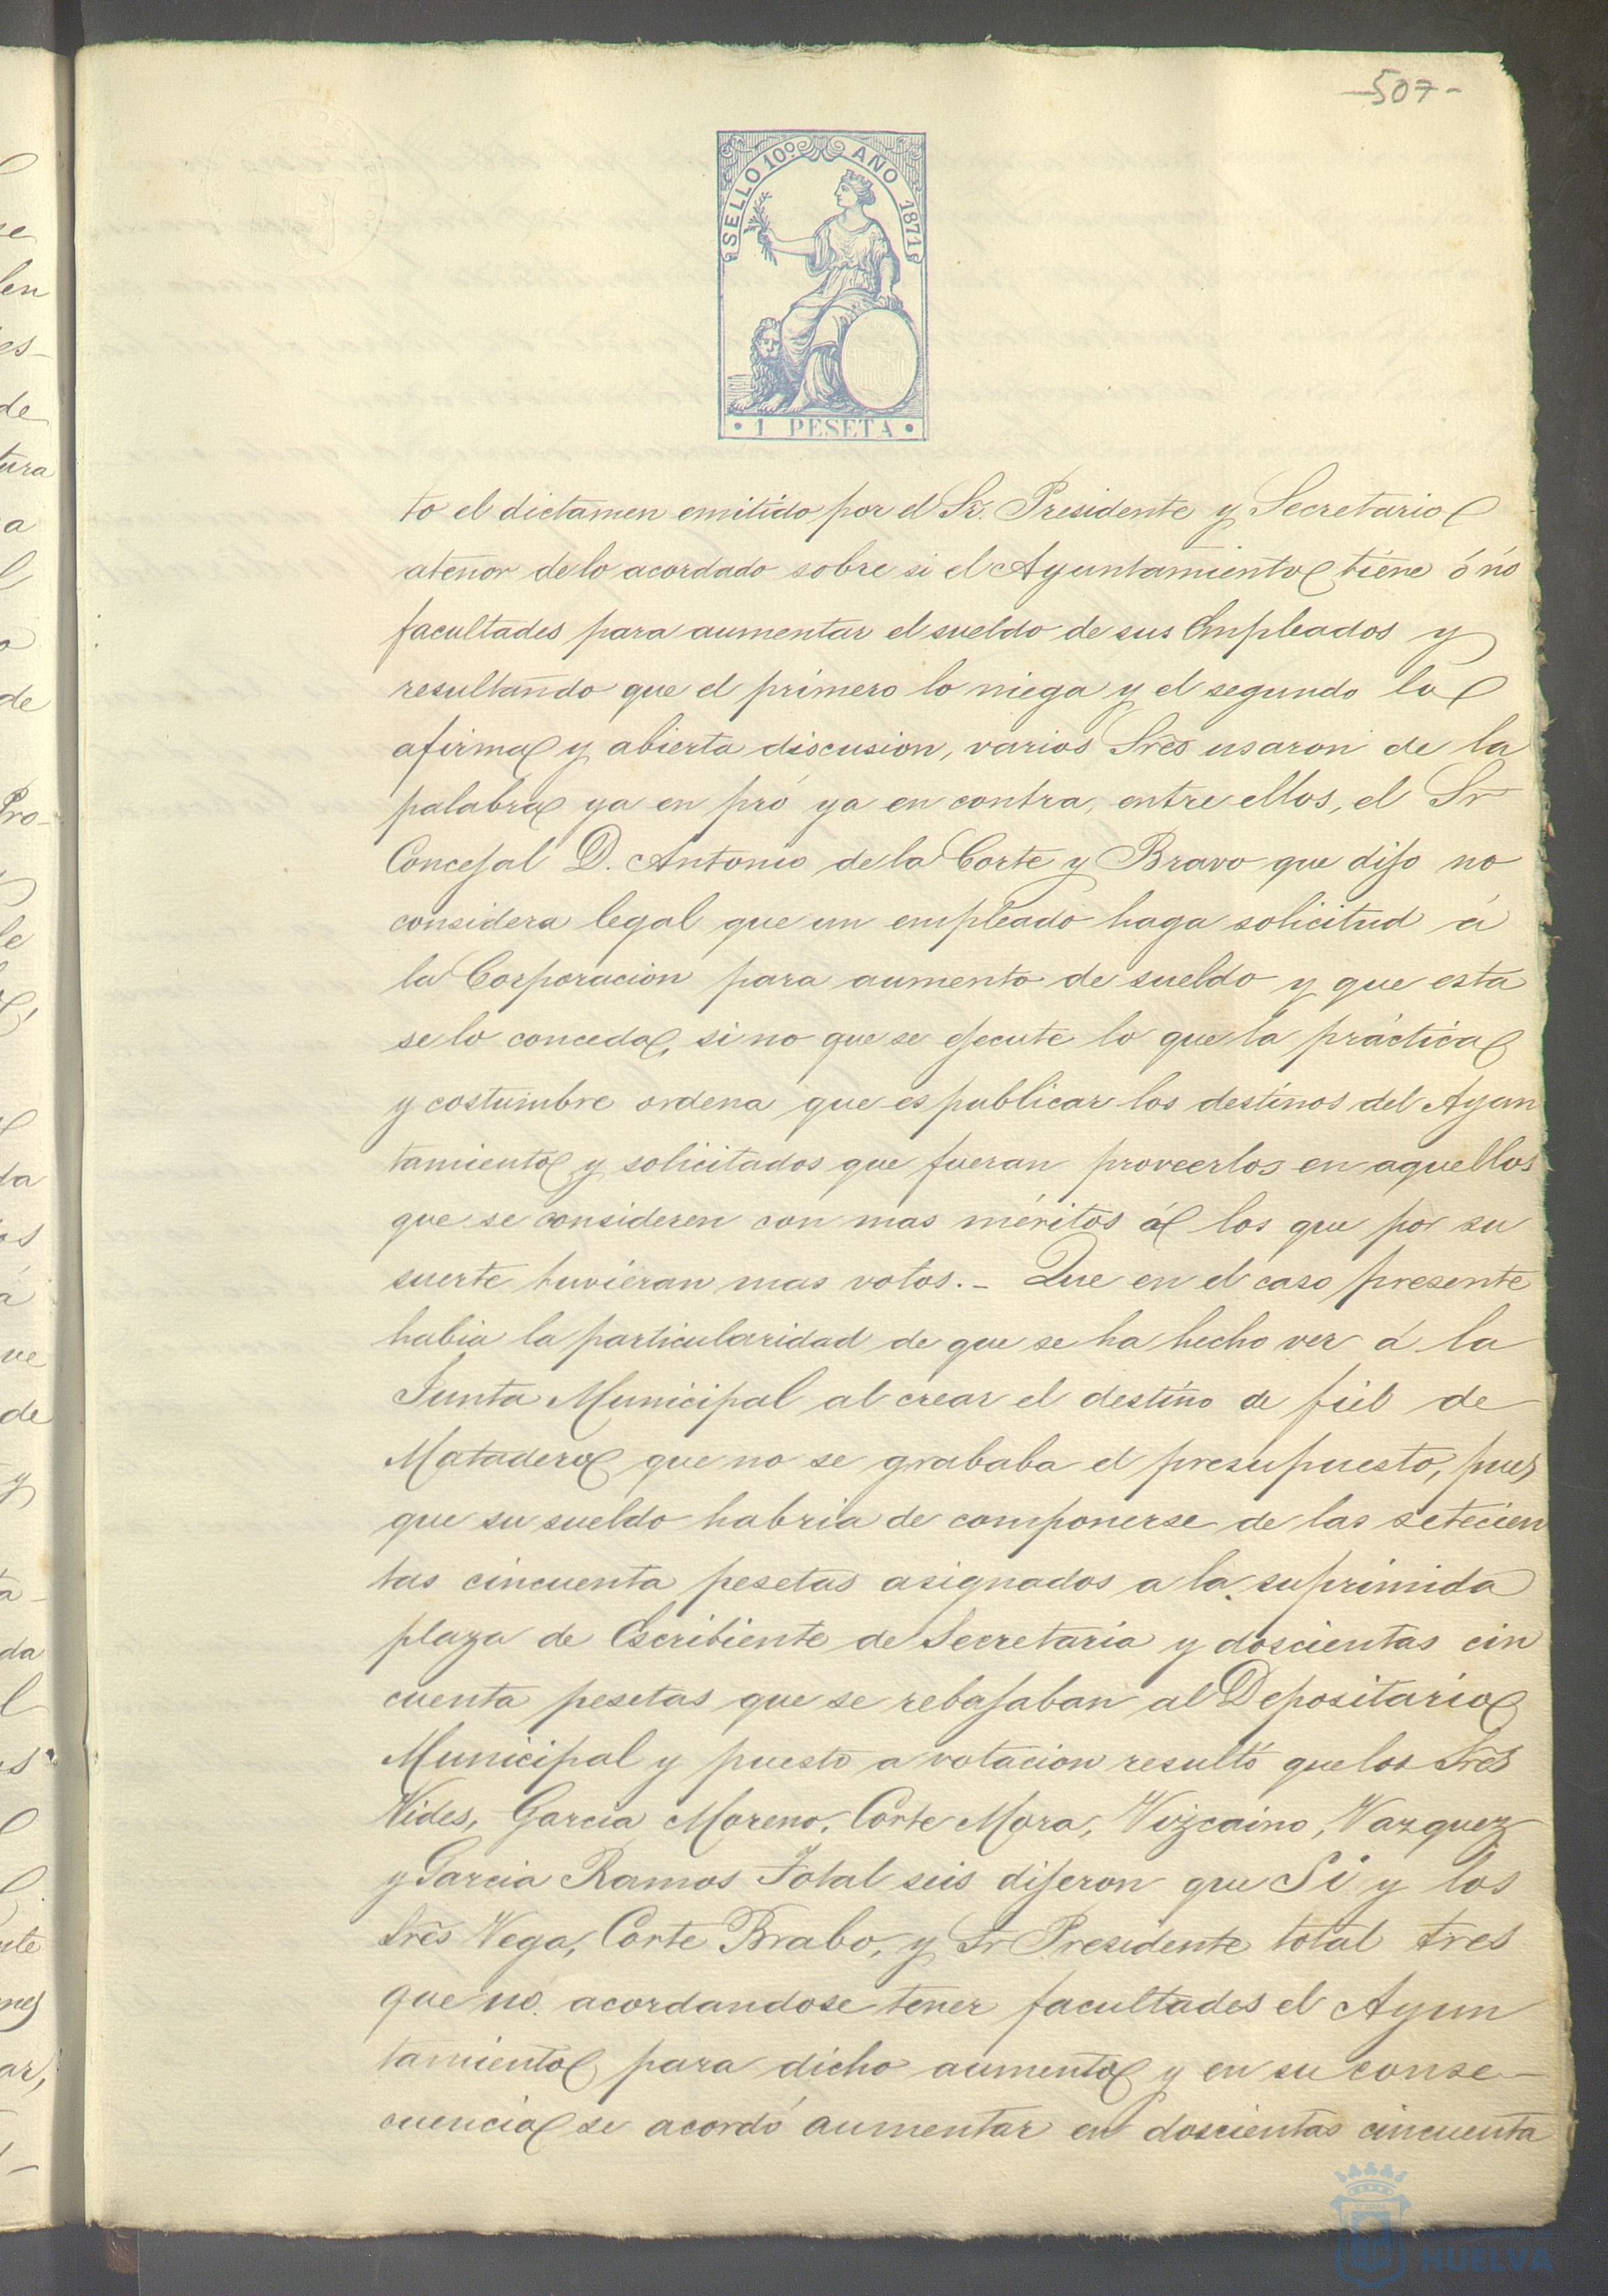 -507-
SELLO 10º AÑO 1871
• 1 PESETA •
to el dictamen emitido por el Sr. Presidente y Secretario
atenor de lo acordado sobre si el Ayuntamiento tiene ó nó
facultades para aumentar el sueldo de sus Empleados y
resultando que el primero lo niega y el segundo lo
afirma y abierta discusion, varios Sres usaron de la
palabra ya en pró ya en contra, entre ellos, el Sr
Concejal D. Antonio de la Corte y Bravo que dijo no
considera legal que un empleado haga solicitud á
la Corporacion para aumento de sueldo y que esta
se lo conceda, si no que se ejecute lo que la práctica
y costumbre ordena que es publicar los destinos del Ayun
tamiento y solicitados que fueran proveerlos en aquellos
que se consideren con mas méritos á los que por su
suerte tuvieran mas votos.- Que en el caso presente
habia la particularidad de que se ha hecho ver á la
Junta Municipal al crear el destino de fiel de
Matadero que no se grababa el presupuesto, pues
que su sueldo habria de componerse de las setecien
tas cincuenta pesetas asignados a la suprimida
plaza de Escribiente de Secretaria y doscientas cin
cuenta pesetas que se rebajaban al Depositario
Municipal y puesto a votacion resultó que los Sres
Vides, Garcia Moreno, Corte Mora, Vizcaino, Vazquez
y Garcia Ramos Total seis dijeron que Si y los
Sres Vega, Corte Brabo, y Sr Presidente total tres
que no. acordandose tener facultades el Ayun
tamiento para dicho aumento y en su conse-
cuencia se acordó aumentar en doscientas cincuenta
HUELVA